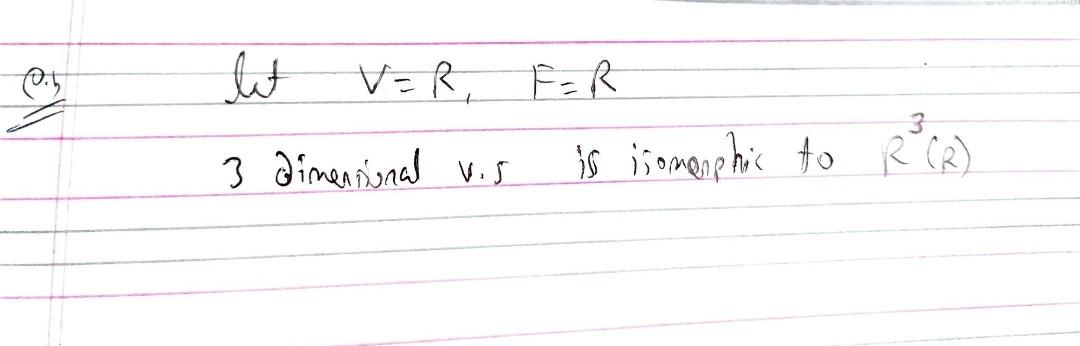 Q.5 let V = R, F = R
3 dimensional v.s is isomorphic to R³(R)